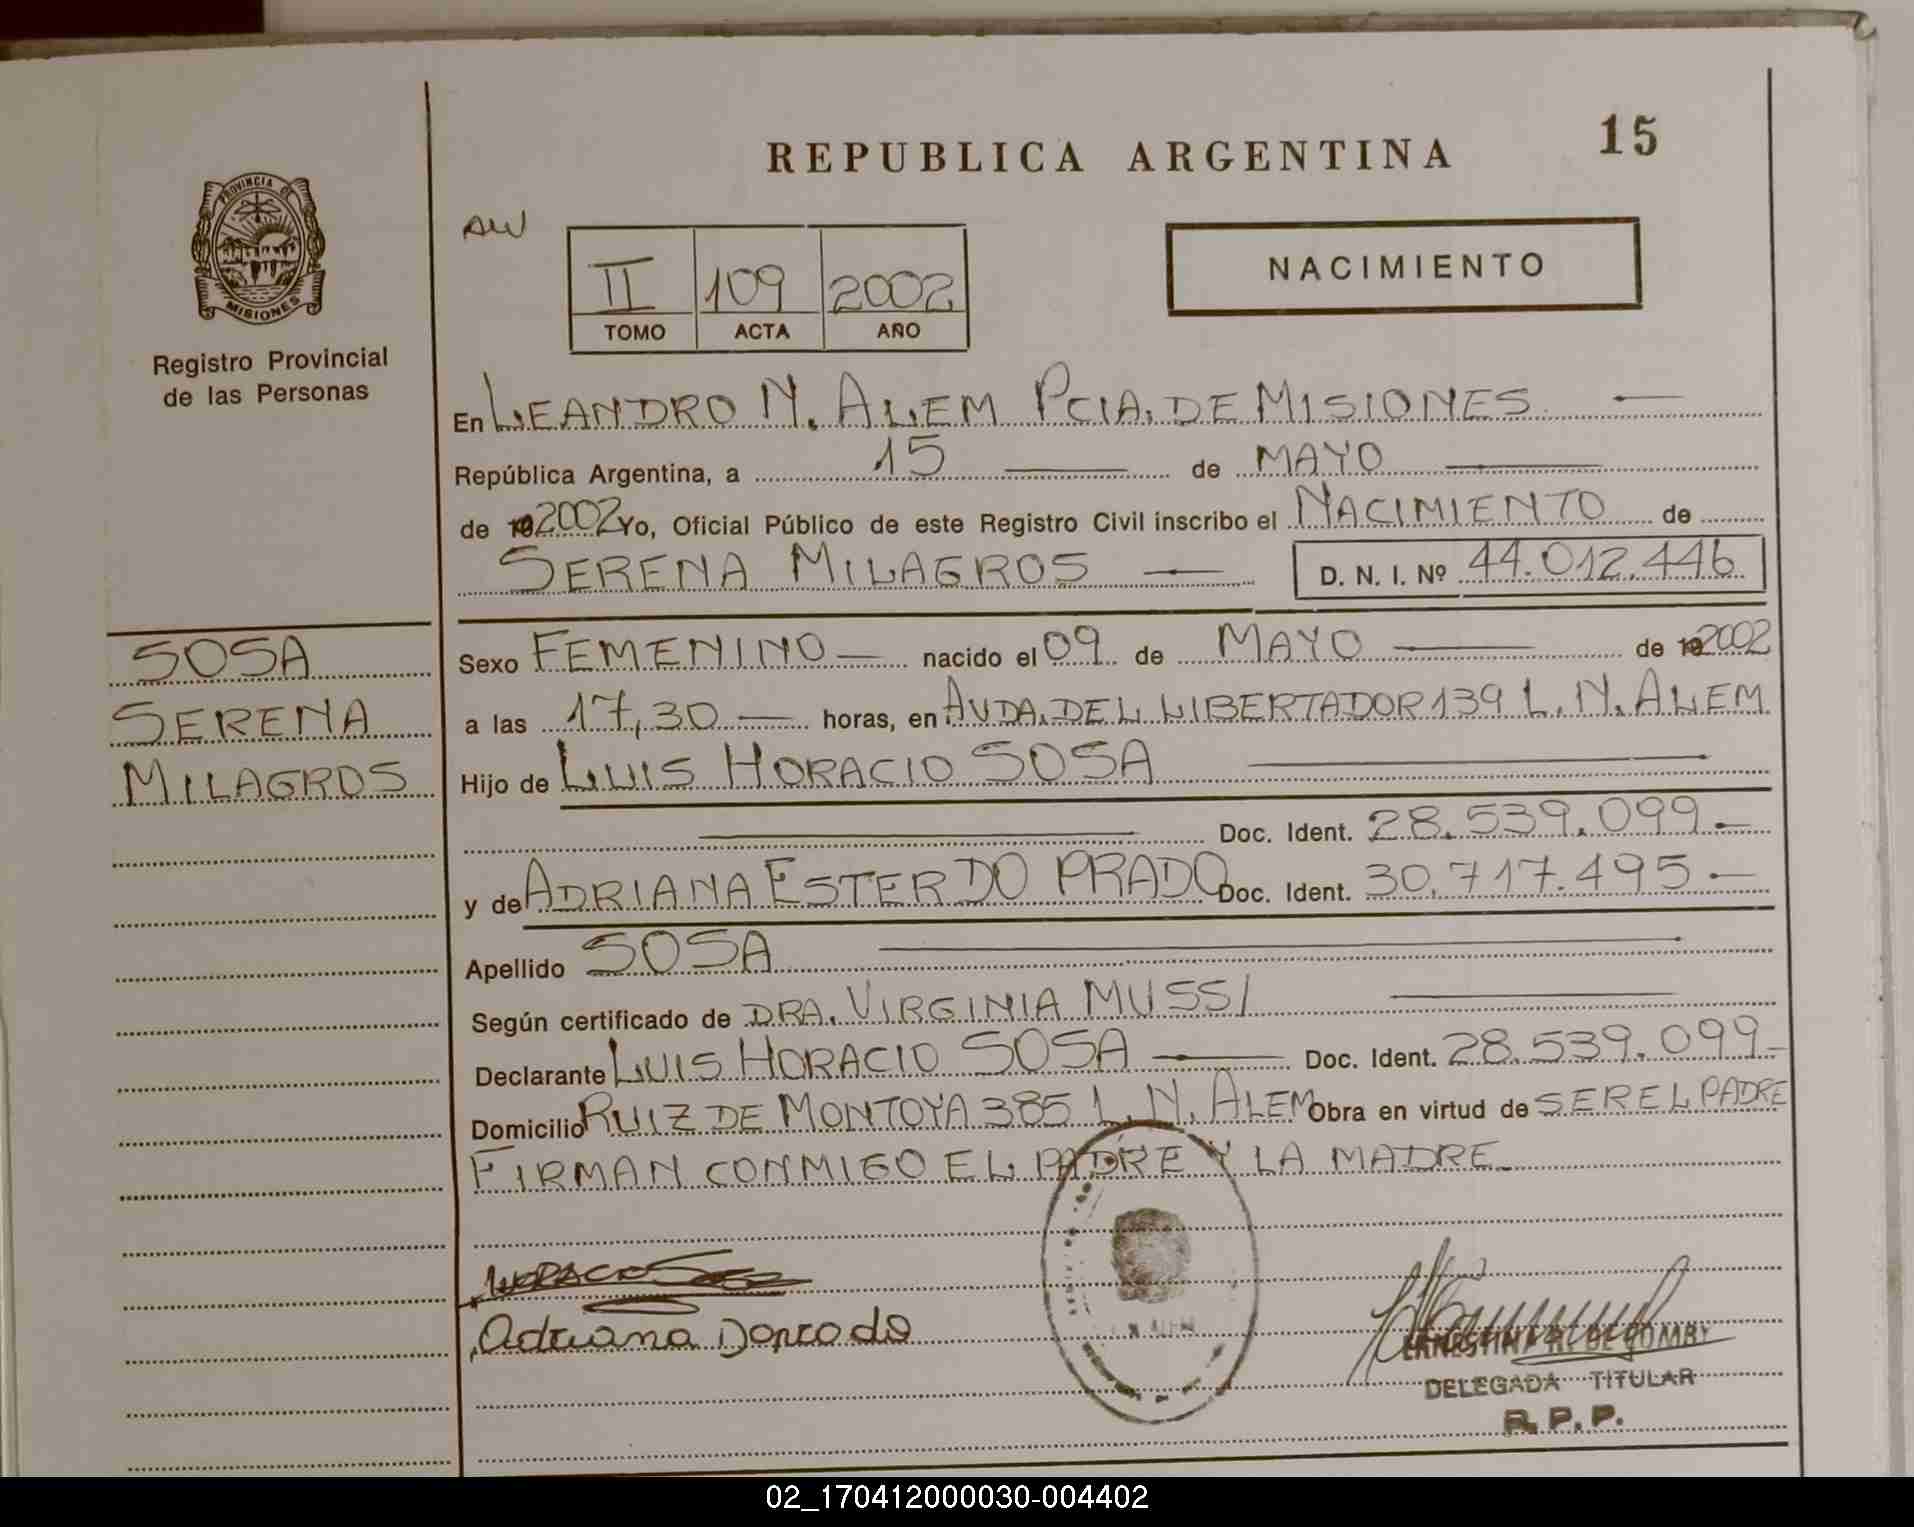 REPUBLICA ARGENTINA
15
PROVINCIA DE
MISIONES
Registro Provincial
de las Personas
AW
II 109 2002
TOMO ACTA AÑO
NACIMIENTO
En LEANDRO N. ALEM PCIA. DE MISIONES
República Argentina, a 15 de MAYO
de 2002 Yo, Oficial Público de este Registro Civil inscribo el NACIMIENTO de
SERENA MILAGROS D. N. I. Nº 44.012.446
SOSA
SERENA
MILAGROS
Sexo FEMENINO nacido el 09 de MAYO de 2002
a las 17,30 horas, en AVDA. DEL LIBERTADOR 139 L. N. ALEM
Hijo de LUIS HORACIO SOSA
Doc. Ident. 28.539.099.-
y de ADRIANA ESTER DO PRADO Doc. Ident. 30.717.495-
Apellido SOSA
Según certificado de DRA. VIRGINIA MUSSI
Declarante LUIS HORACIO SOSA Doc. Ident. 28.539.099-
Domicilio RUIZ DE MONTOYA 385 L. N. ALEM Obra en virtud de SER EL PADRE
FIRMAN CONMIGO EL PADRE Y LA MADRE.
Adriana Doprado
DELEGADA TITULAR
R. P. P.
02_170412000030-004402